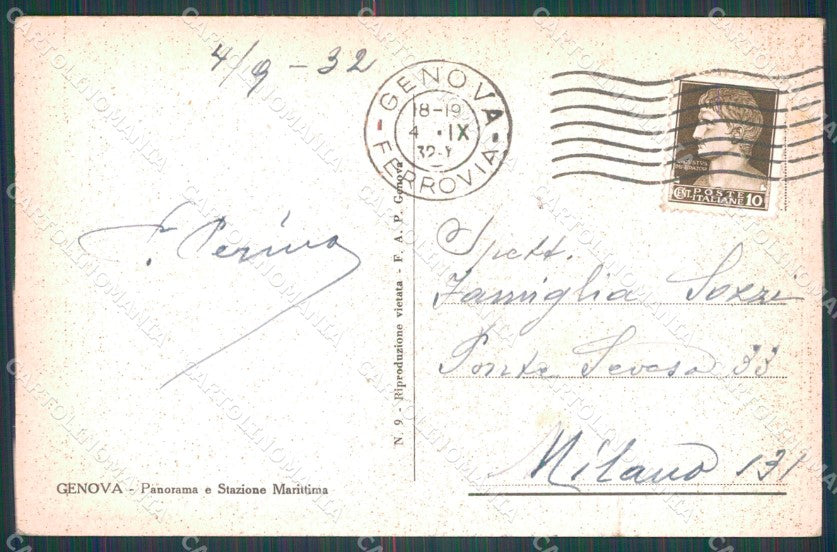 4/9 - 32
GENOVA
18-19
4 . IX
32-X
FERROVIA
POSTE
ITALIANE
CENT. 10
F. Perino
Spett.
Famiglia Sozzi
Ponte Seveso 33
Milano 131
N. 9 - Riproduzione vietata - F. A. P. Genova
GENOVA - Panorama e Stazione Marittima
CARTOLINOMANIA